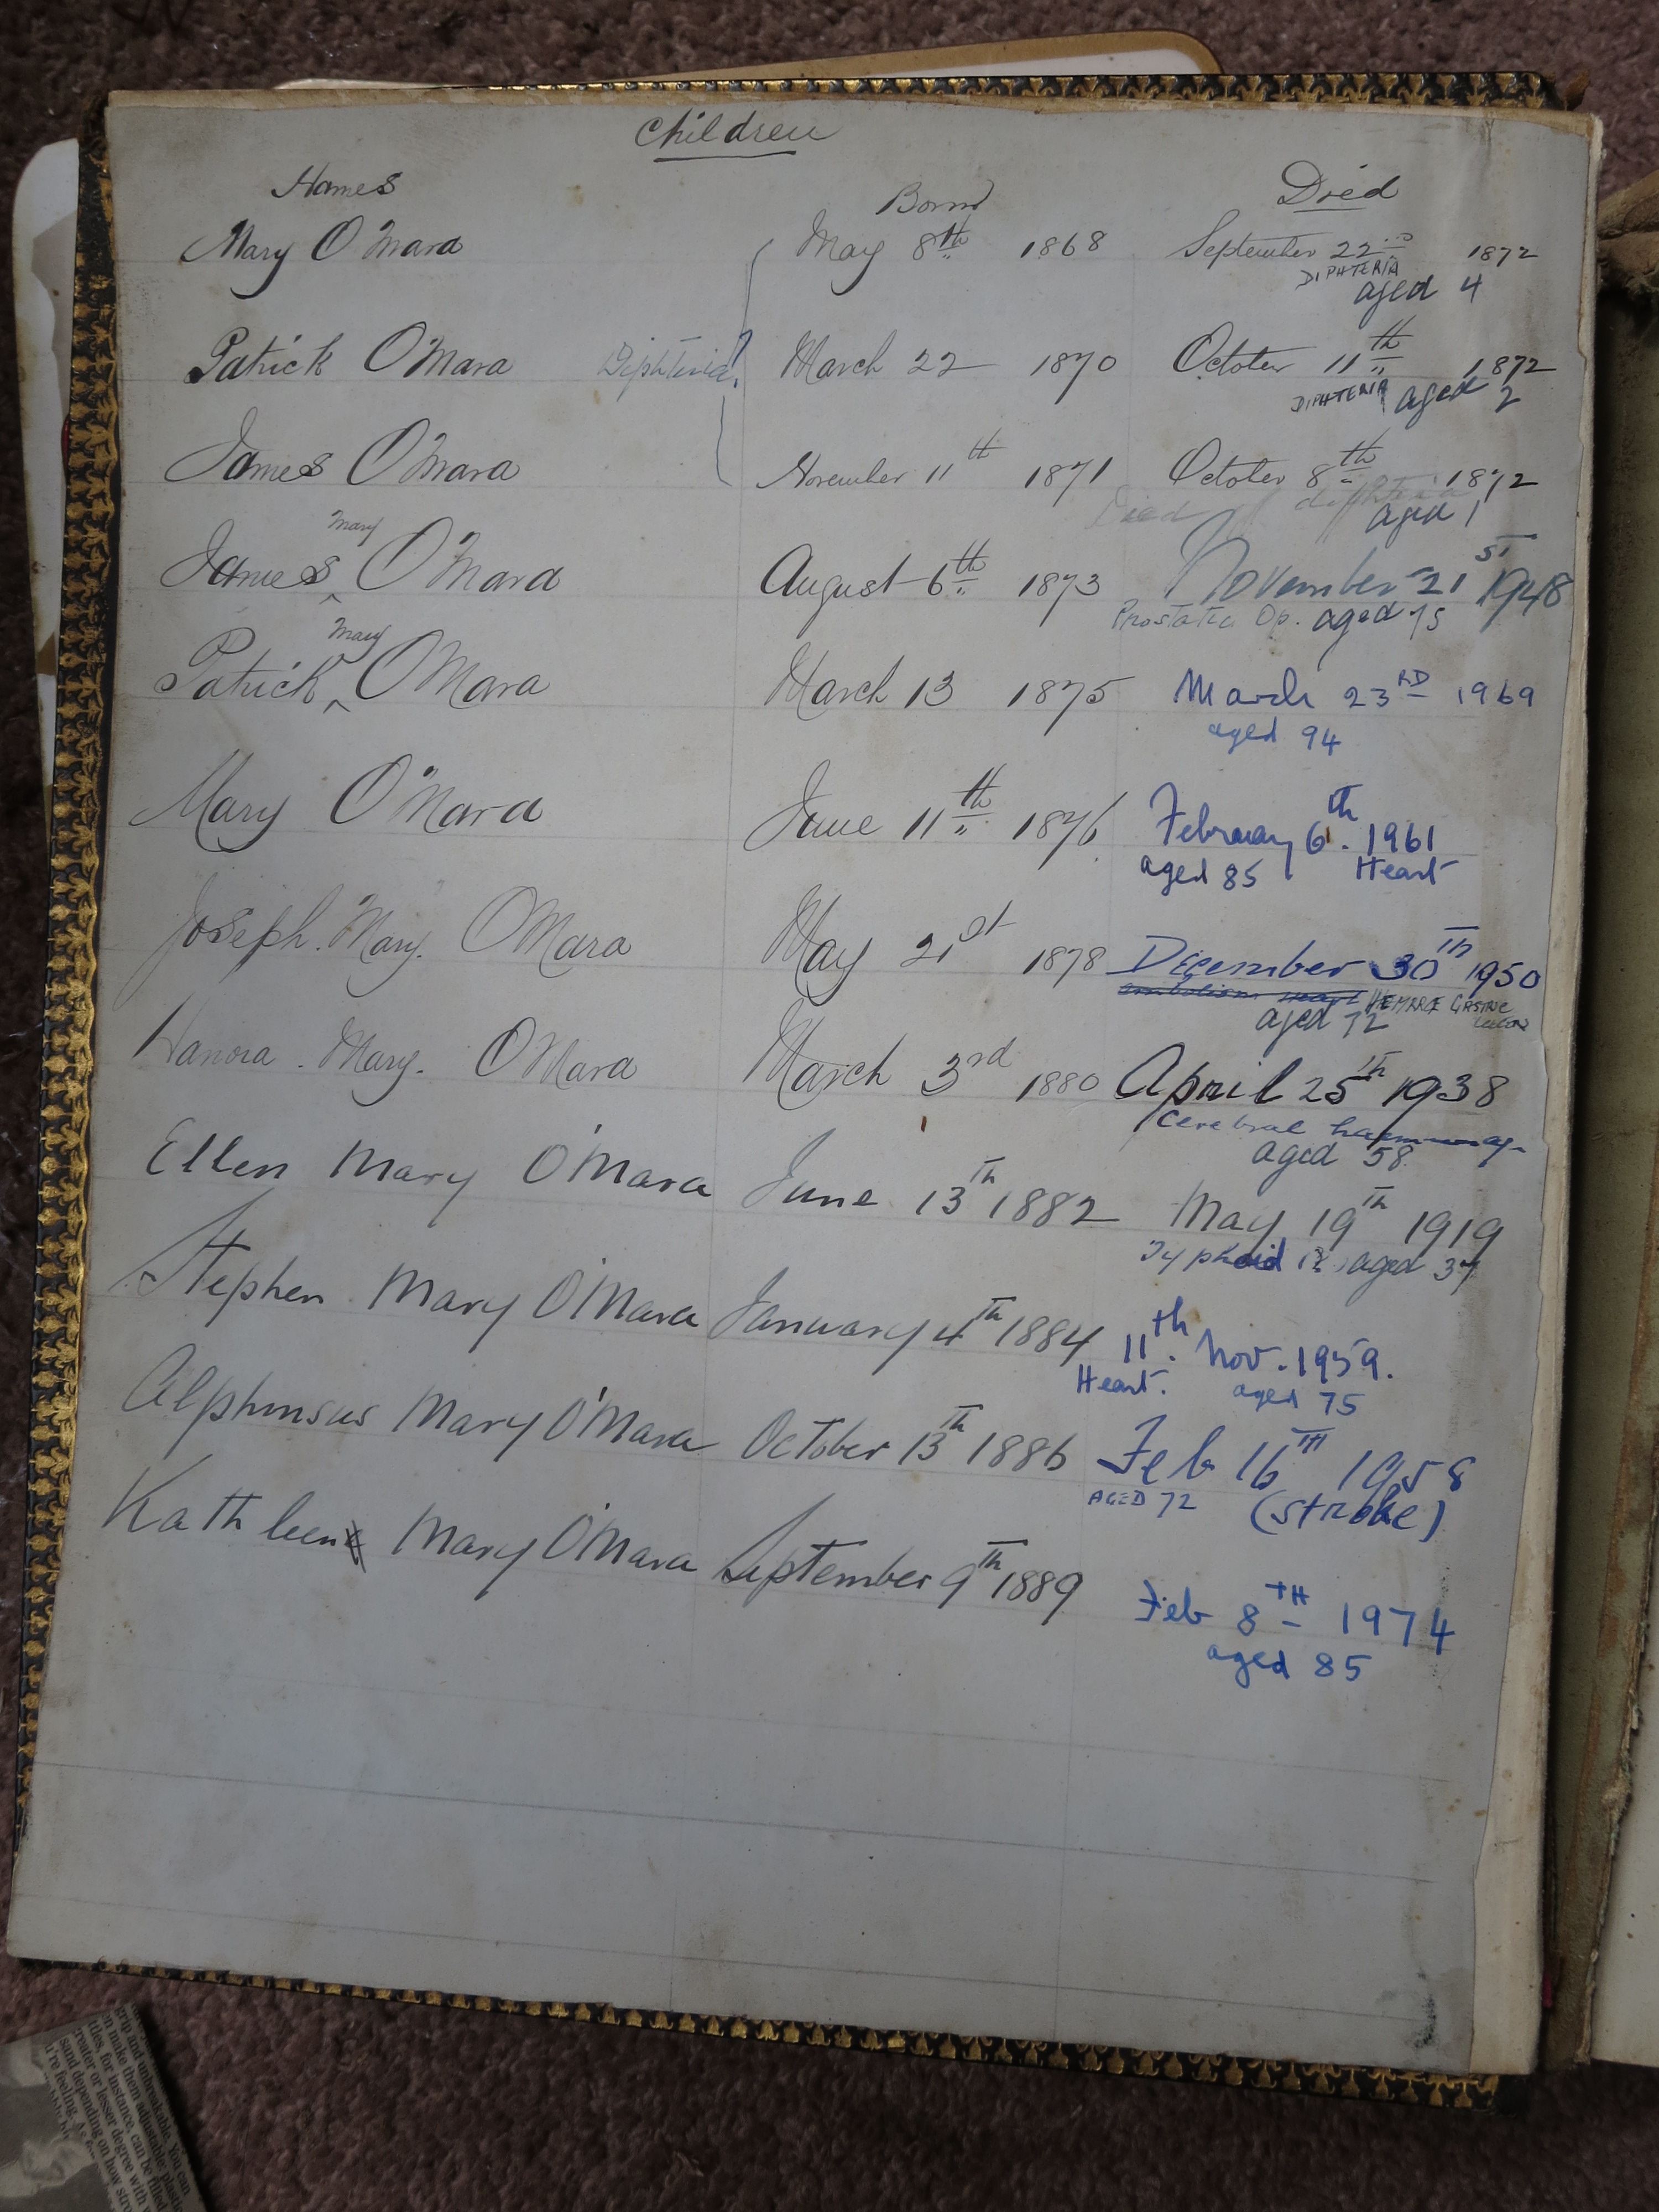 Children
Names Born Died
Mary O'Mara May 8th 1868 September 22nd 1872
DIPHTERIA
aged 4
Patrick O'Mara Diphteria? March 22 1870 October 11th 1872
DIPHTERIA aged 2
James O'Mara November 11th 1871 October 8th 1872
Died of diphteria
aged 1
Mary
James ^ O'Mara August 6th 1873 November 21st 1948
Prostatic Op. aged 75
Mary
Patrick ^ O'Mara March 13 1875 March 23RD 1969
aged 94
Mary O'Mara June 11th 1876 February 6th. 1961
aged 85 Heart
Joseph. Mary. O'Mara May 21st 1878 December 30th 1950
embolism heart HEMRGE GASTRIC
aged 72
Hanora. Mary. O'Mara March 3rd 1880 April 25th 1938
Cerebral
aged 58
Ellen Mary O'Mara June 13th 1882 May 19th 1919
Typhoid aged 37
Stephen Mary O'Mara January 4th 1884 11th. Nov. 1959.
Heart. aged 75
Alphonsus Mary O'Mara October 13th 1886 Feb 16TH 1958
AGED 72 (stroke)
Kathleen Mary O'Mara September 9th 1889 Feb 8TH 1974
aged 85
grip and unbreakable. You can
make them adjustable
for instance, can be filled
greater or lesser degree with
sand depending on how
you're feeling. As